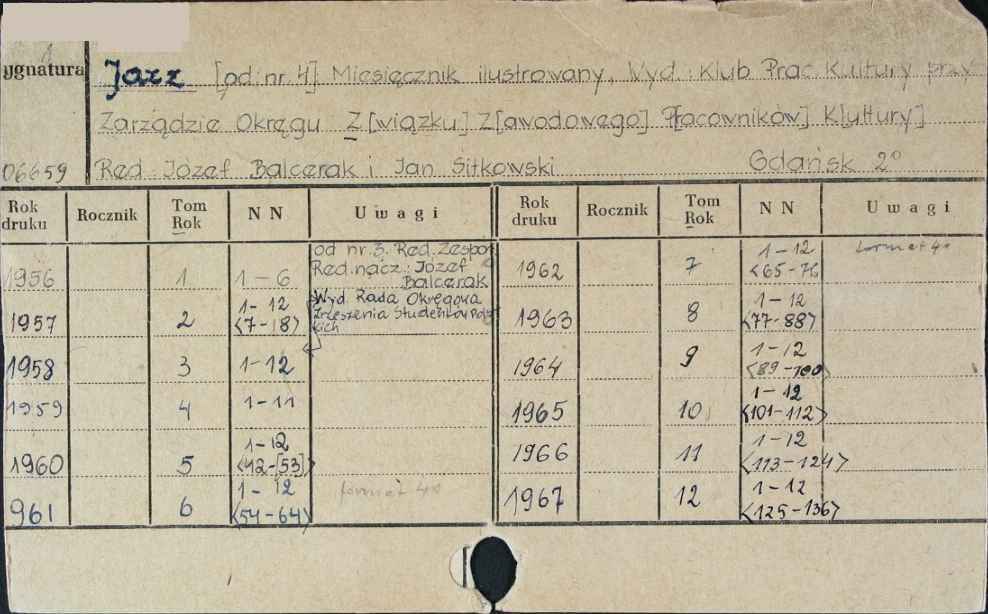 ygnatura
Jazz [od nr. 4] Miesięcznik ilustrowany, Wyd.: Klub Prac. Kultury przy
Zarządzie Okręgu Z[wiązku] Z[awodowego] P[racowników] K[ultury]
06659 Red. Józef Balcerak i Jan Sitkowski Gdańsk 2°
Rok druku Rocznik Tom Rok N N Uwagi
1956 1 1-6 od nr 3. Red. Zespoł
Red. nacz.: Józef
Balcerak
1957 2 1-12 <7-18> Wyd. Rada Okręgowa
Zrzeszenia Studentów Pols
kich
1958 3 1-12
1959 4 1-11
1960 5 1-12 <42-[53]>
961 6 1-12 <54-64> format 4°
Rok druku Rocznik Tom Rok N N Uwagi
1962 7 1-12 <65-76 format 4°
1963 8 1-12 <77-88>
1964 9 1-12 <89-100
1965 10 1-12 <101-112>
1966 11 1-12 <113-124>
1967 12 1-12 <125-136>